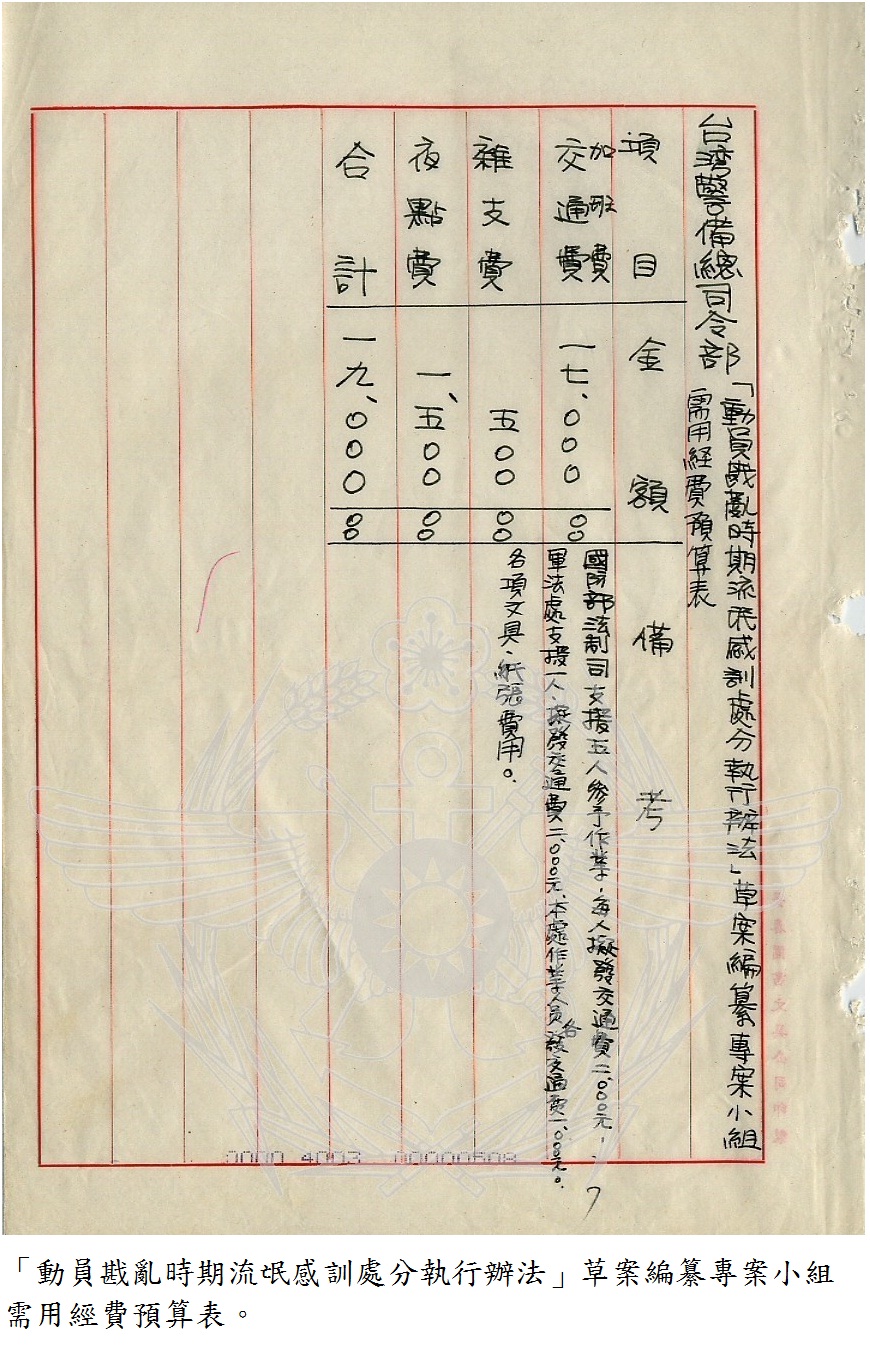 台湾警備總司令部「動員戡亂時期流氓感訓處分執行辦法」草案編纂專案小組
需用経費預算表
項目 金額 備考
加班費
交通費 一七、000 00 國防部法制司支援五人參予作業,每人擬發交通費二、000元,
軍法處支援一人,擬發交通費二、000元、本處作業人員各發交通費一、000元。
雜支費 五00 00 各項文具、紙張費用。
夜點費 一、五00 00
合計 一九、000 00
0000 4003 00000508
「動員戡亂時期流氓感訓處分執行辦法」草案編纂專案小組
需用經費預算表。